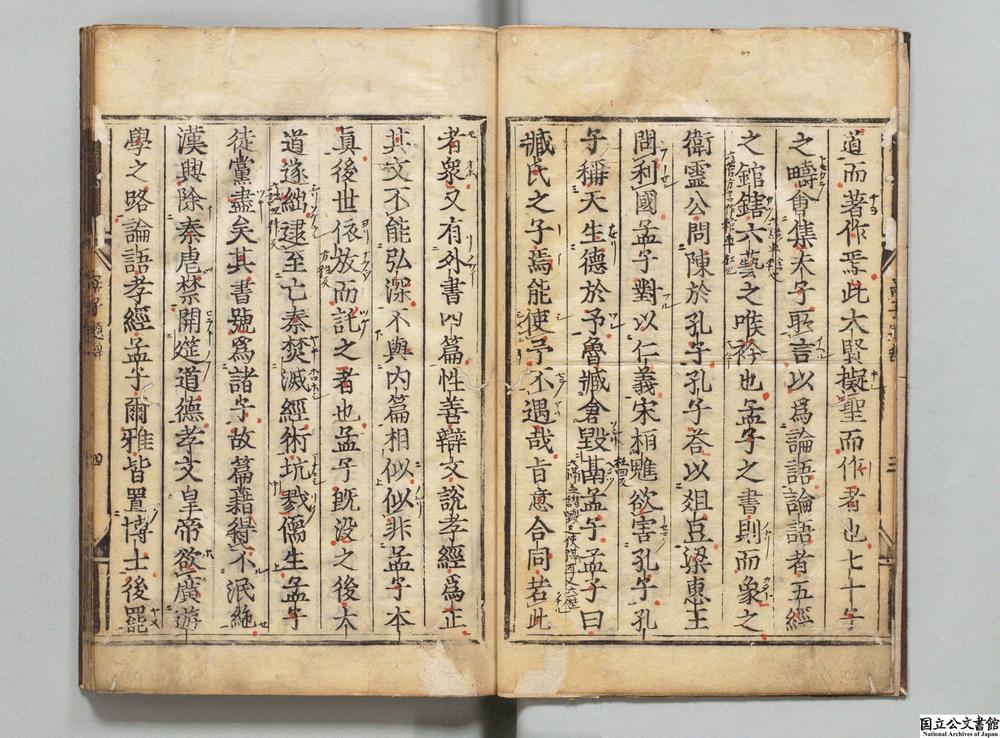 道而著作焉此大賢擬聖而作者也七十子
之疇會集夫子所言以爲論語論語者五經
之錧鎋六藝之喉衿也孟子之書則而象之
衛靈公問陳於孔子孔子荅以俎豆梁惠王
問利國孟子對以仁義宋桓魋欲害孔子孔
子稱天生德於予魯臧倉毀鬲孟子孟子曰
臧氏之子焉能使予不遇哉旨意合同若此
者衆又有外書四篇性善辯文說孝經爲正
其文不能弘深不與內篇相似似非孟子本
眞後世依放而託之者也孟子旣沒之後大
道遂絀逮至亡秦焚滅經術坑戮儒生孟子
徒黨盡矣其書號爲諸子故篇籍得不泯絶
漢興除秦虐禁開延道德孝文皇帝欲廣遊
學之路論語孝經孟子爾雅皆置博士後罷
国立公文書館
National Archives of Japan